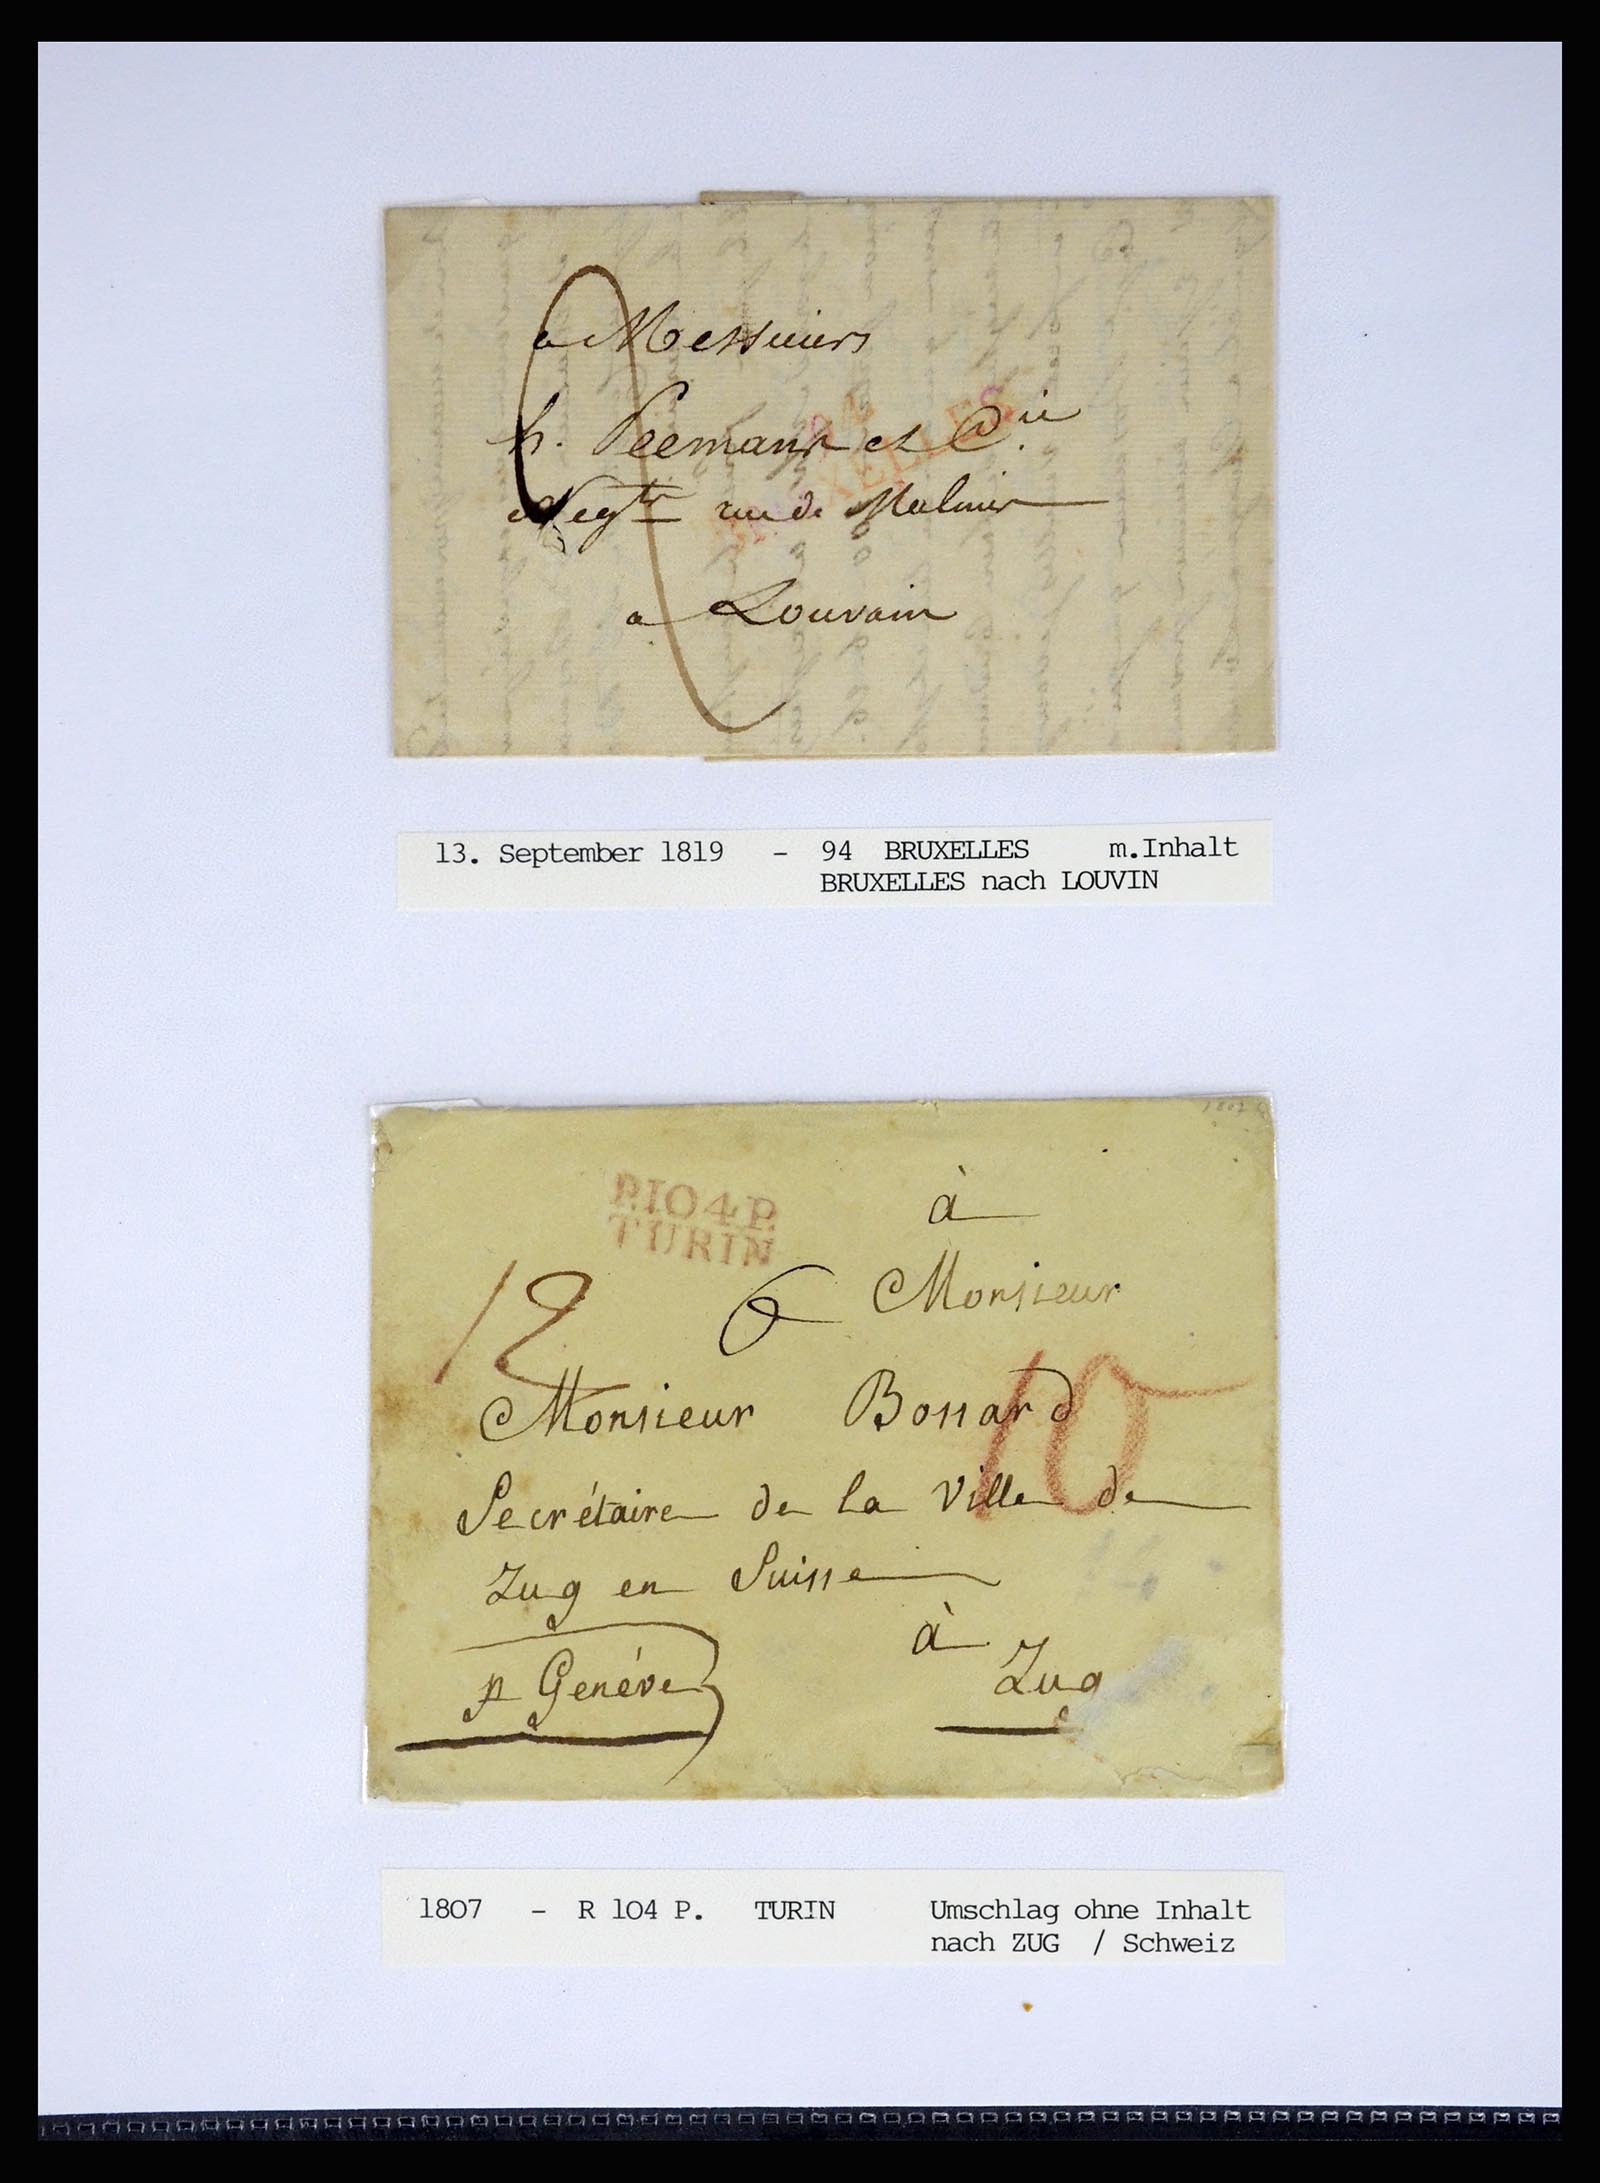 2
a Messieurs
h. Peemans et Cie
Negts rue de Malines
a Louvain
94
BRUXELLES
13. September 1819 - 94 BRUXELLES m.Inhalt
BRUXELLES nach LOUVIN
1807
P.104P.
TURIN
à
12 6 Monsieur
10
Monsieur Bossard
Secrétaire de la Ville de
Zug en Suisse
à
p Genéve
Zug
1807 - R 104 P. TURIN Umschlag ohne Inhalt
nach ZUG / Schweiz